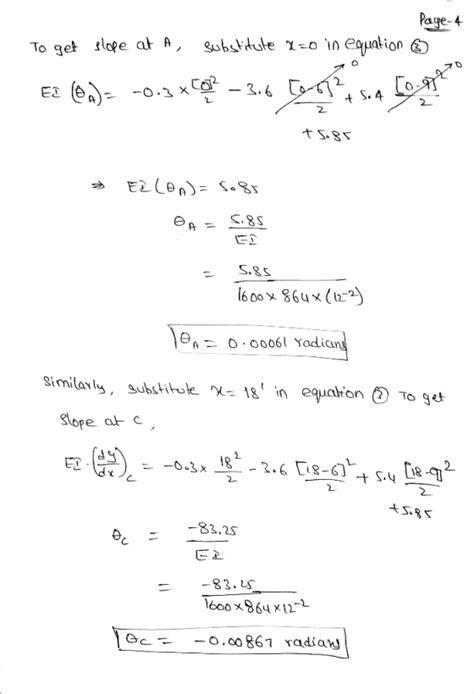 Page-4
To get slope at A, substitute x=0 in equation ②
EI (θA) = -0.3 × [0]²/2 - 3.6 [0-6]²/2 →0 + 5.4 [0-9]²/2 →0
+5.85
⇒ EI(θA) = 5.85
θA = 5.85/EI
= 5.85/1600×864×(12⁻²)
θA = 0.00061 radians
Similarly, substitute x= 18' in equation ② To get
slope at C,
EI·(dy/dx)C = -0.3× 18²/2 - 3.6 [18-6]²/2 + 5.4 [18-9]²/2
+5.85
θC = -83.25/EI
= -83.25/1600×864×12⁻²
θC = -0.00867 radians